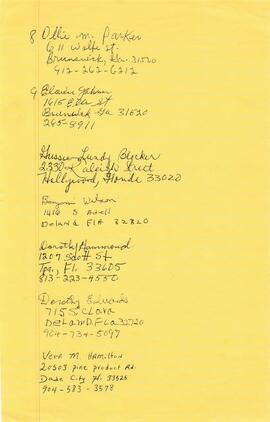 8 Ollie M. Parker
611 Wolfe St.
Brunswick, Ga. 31520
912-262-6212
9
1615 St
Brunswick Ga 31520
265-8911
Gussie Lundy
2330 Raleigh Street
Hollywood, Florida 33020
Benjamin Wilson
1416 S Adell
DeLand FlA
Dorothy Hammond
1207 Scott St
Tpa, Fl. 33605
813-223-4550
Dorothy Edwards
715 S Clara
DeLanD, Fla 32720
904-734-5097
Vera M. Hamilton
20503 pine product Rd.
Dade City Fl. 33525
904-583-3578